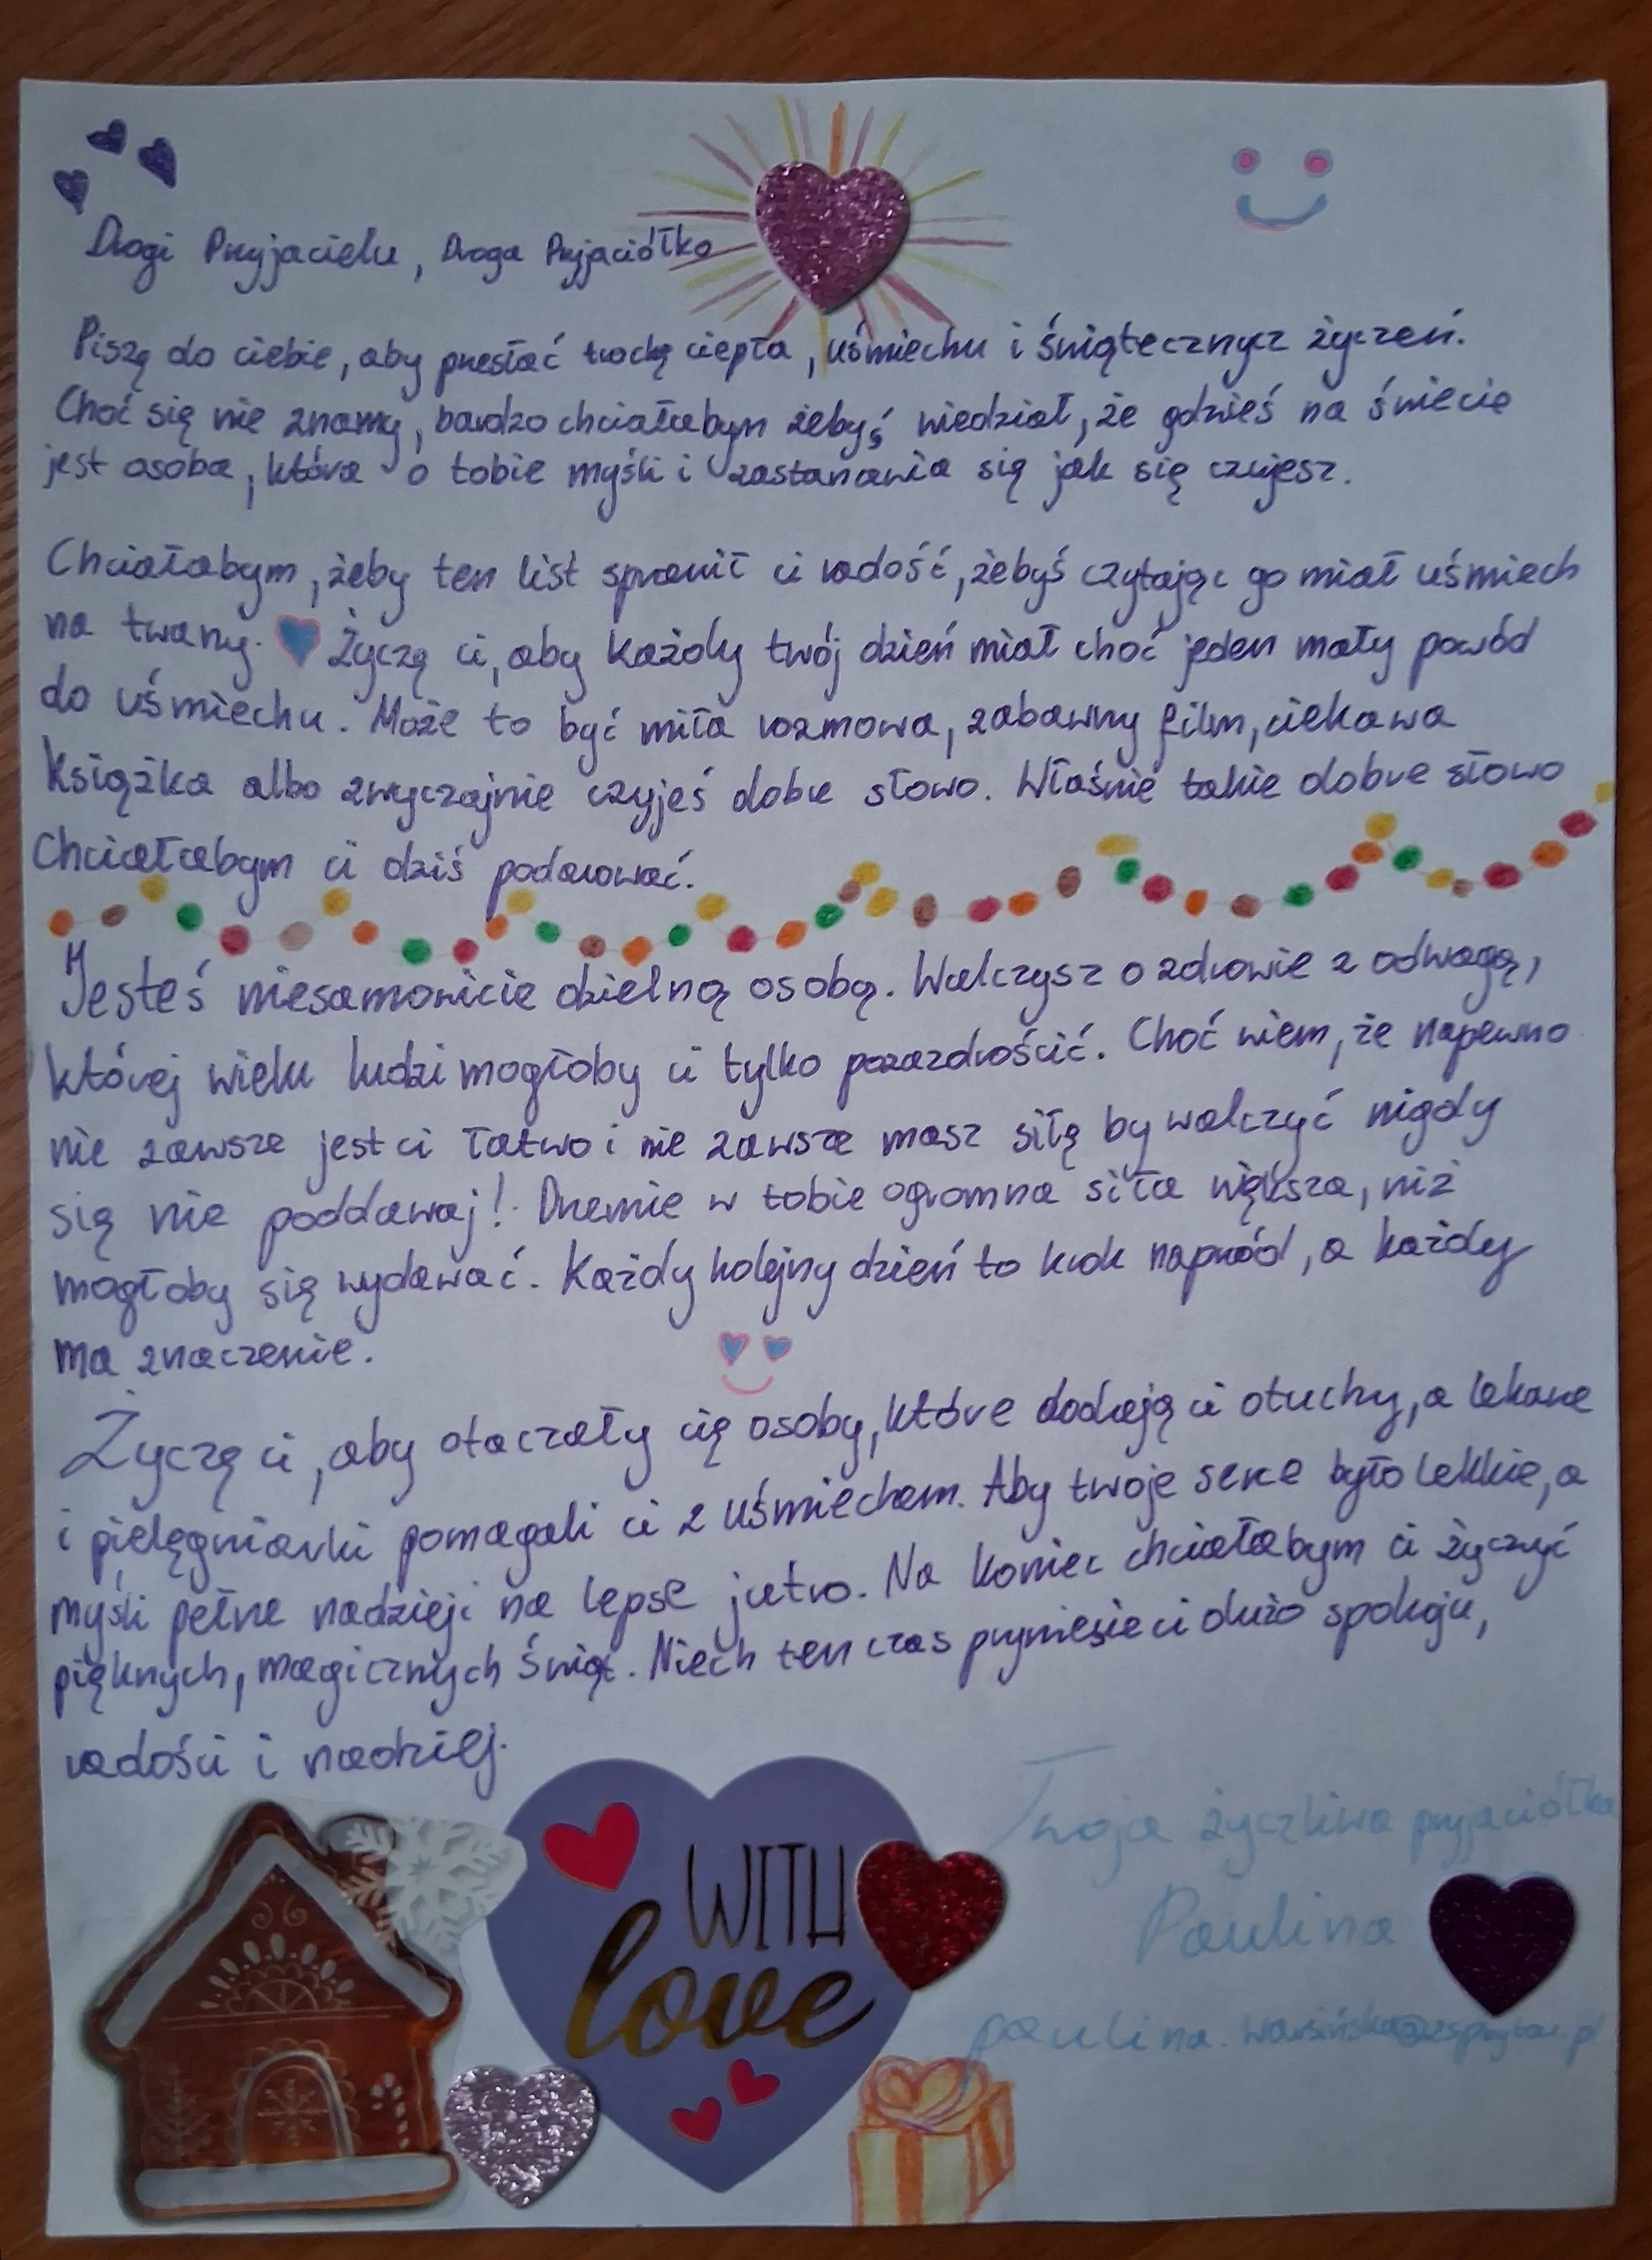 Drogi Przyjacielu, Droga Przyjaciółko
Piszę do ciebie, aby przesłać trochę ciepła, uśmiechu i świątecznycz życzeń.
Choć się nie znamy, bardzo chciałabym żebyś wiedział, że gdzieś na świecie
jest osoba, która o tobie myśli i zastanawia się jak się czujesz.
Chciałabym, żeby ten list sprawił ci radość, żebyś czytając go miał uśmiech
na twarzy. Życzę ci, aby każdy twój dzień miał choć jeden mały powód
do uśmiechu. Może to być miła rozmowa, zabawny film, ciekawa
książka albo zwyczajnie czyjeś dobre słowo. Właśnie takie dobre słowo
chciałabym ci dziś podarować.
Jesteś niesamowicie dzielną osobą. Walczysz o zdrowie z odwagą,
której wielu ludzi mogłoby ci tylko pozazdrościć. Choć wiem, że napewno
nie zawsze jest ci łatwo i nie zawsze masz siłę by walczyć nigdy
się nie poddawaj! Drzemie w tobie ogromna siła większa, niż
mogłoby się wydawać. Każdy kolejny dzień to krok naprzód, a każdy
ma znaczenie.
Życzę ci, aby otaczały cię osoby, które dodają ci otuchy, a lekarze
i pielęgniarki pomagali ci z uśmiechem. Aby twoje serce było lekkie, a
myśli pełne nadzieji na lepsze jutro. Na koniec chciałabym ci życzyć
pięknych, magicznych świąt. Niech ten czas przyniesie ci dużo spokoju,
radości i nadziej.
Twoja życzliwa przyjaciółka
WITH
love
Paulina